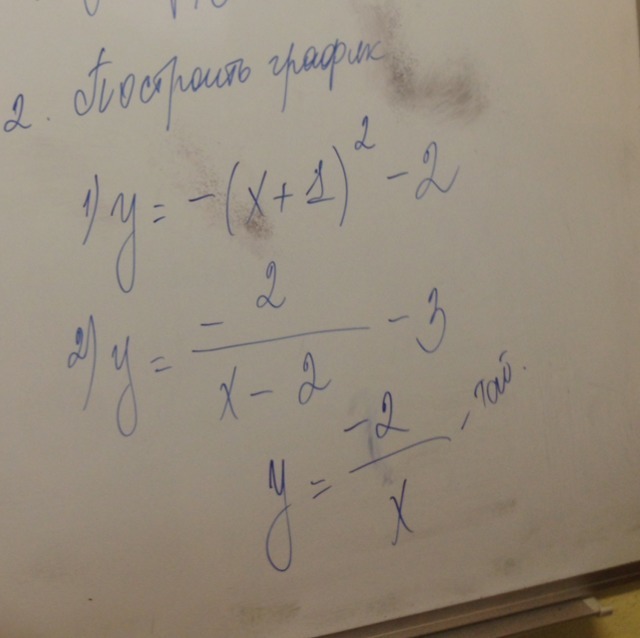 2. Построить график
1) y = -(x+1)² - 2
2) y = -2/(x-2) - 3
y = -2/x - таб.